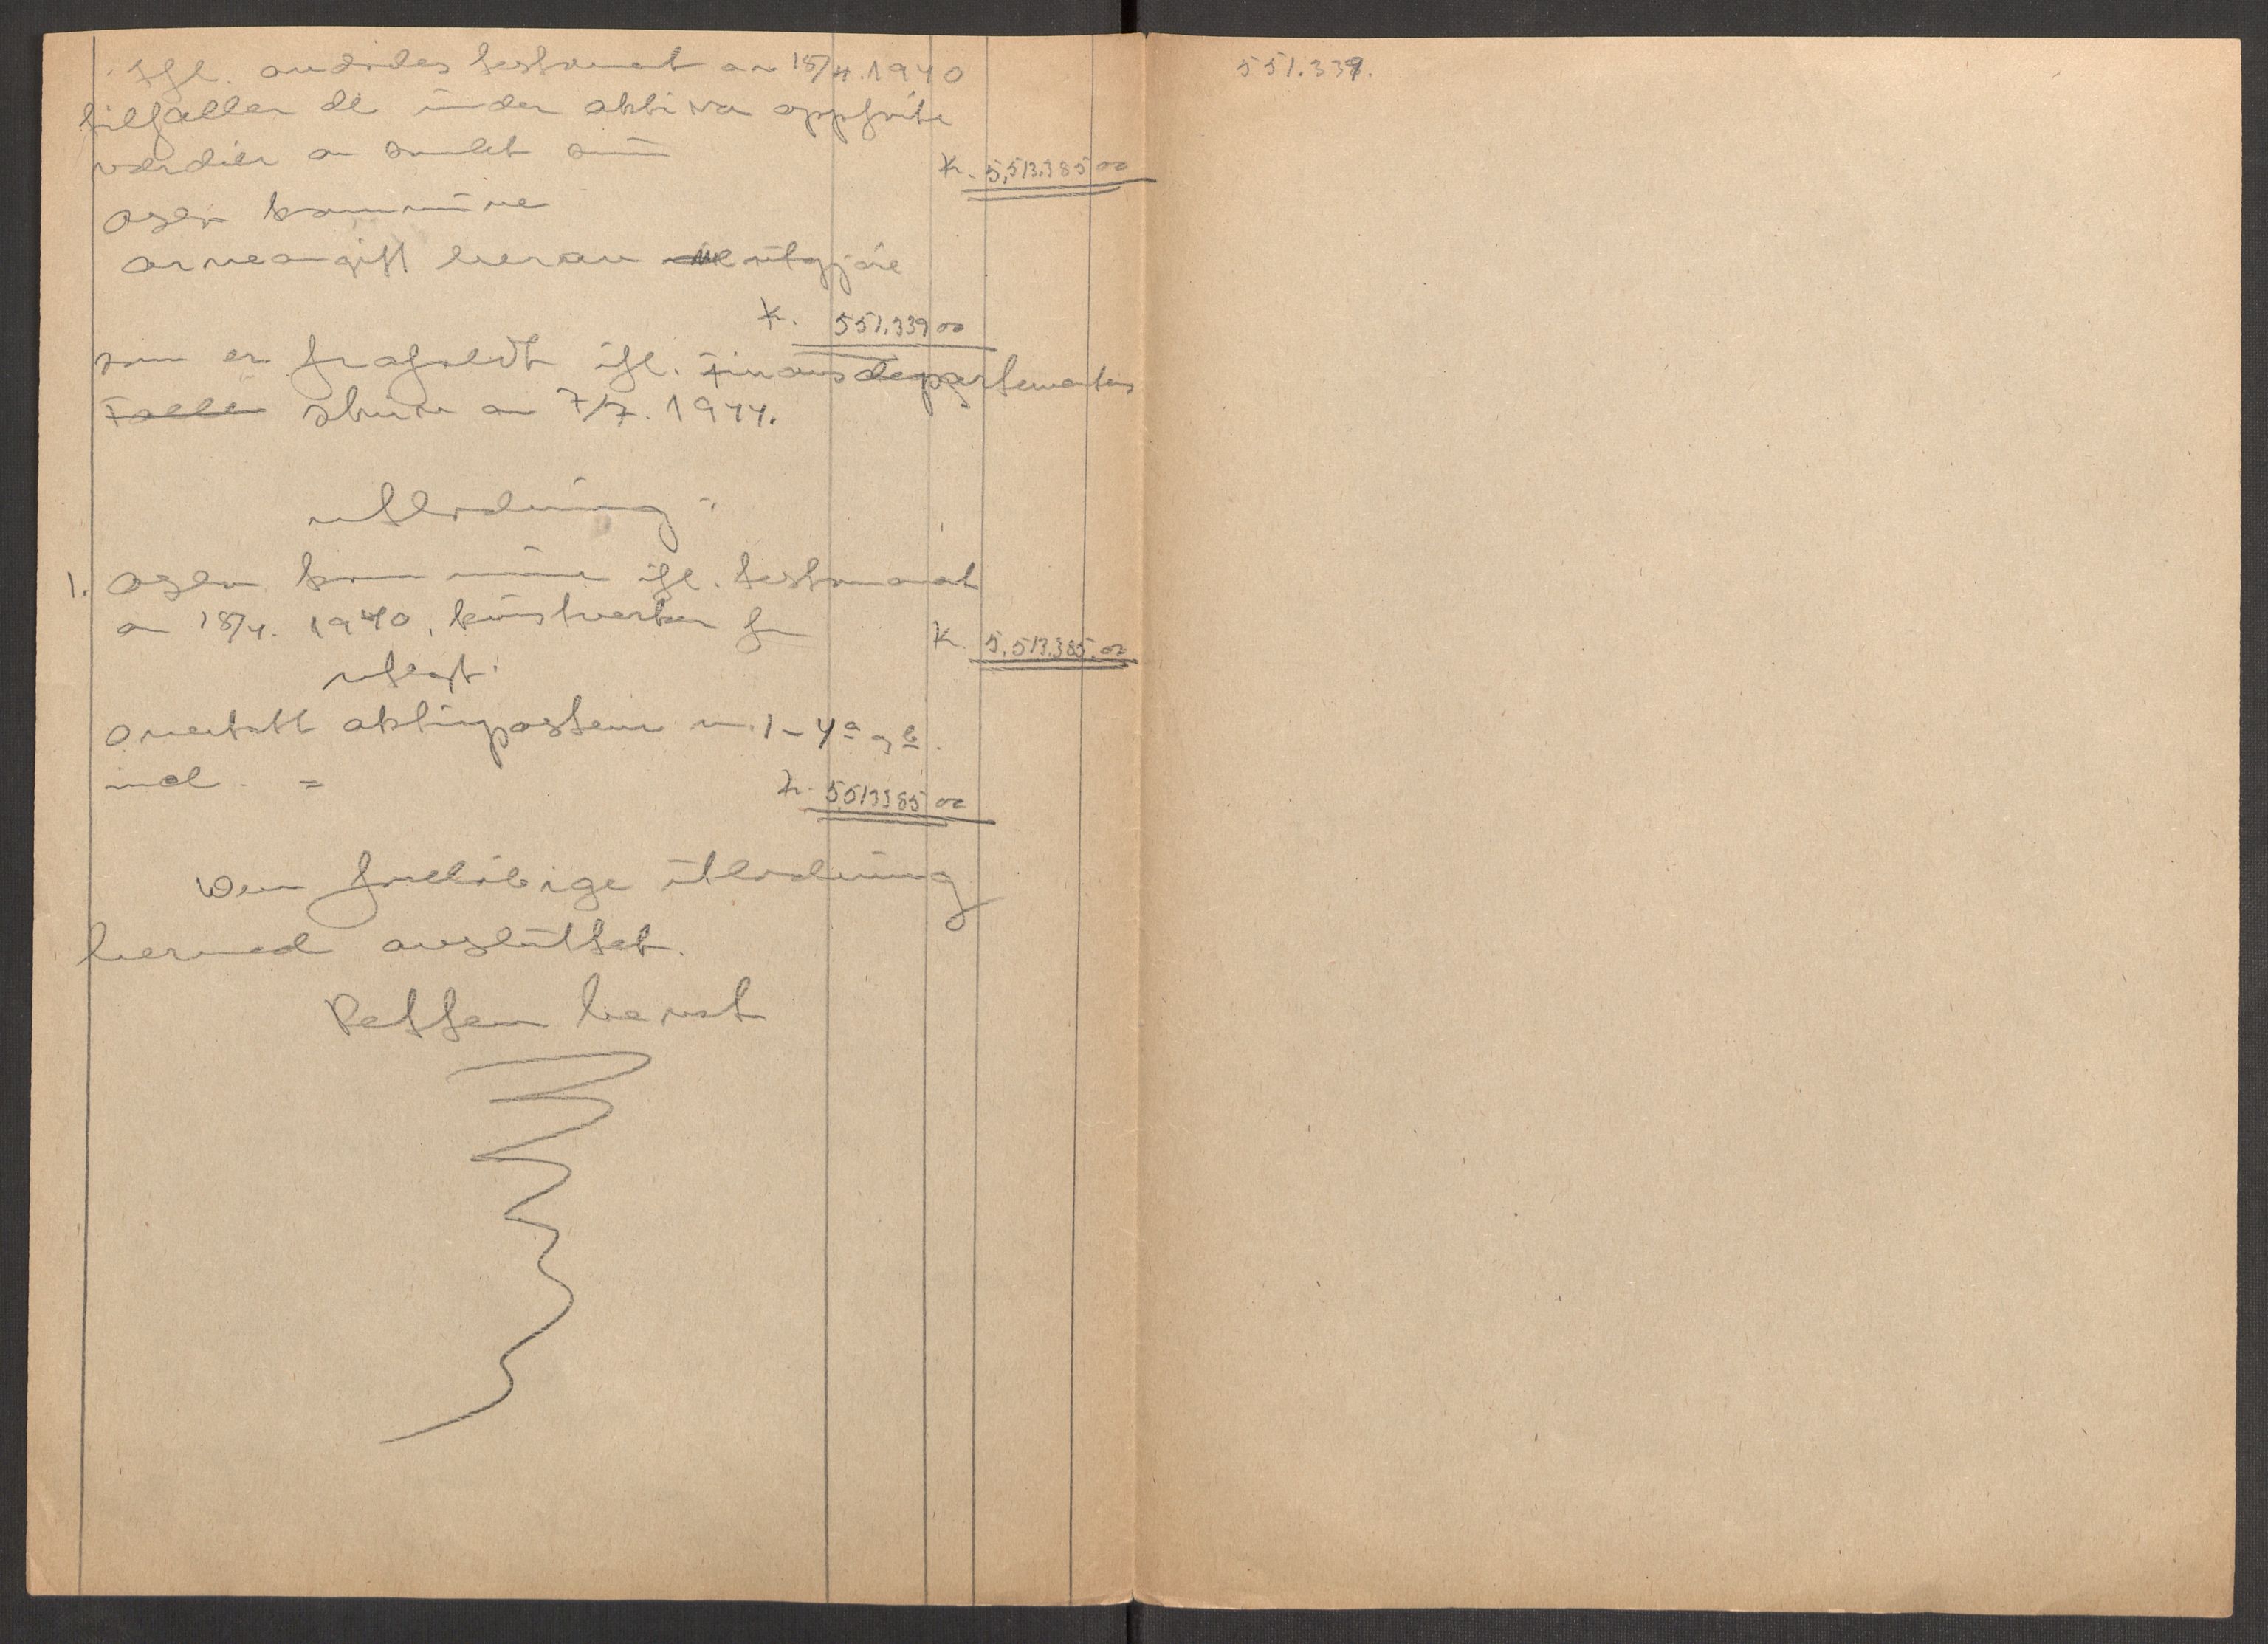 Ifl. avdødes testament av 18/4.1940
tilfaller de under aktiva oppførte
verdier av samlet sum
Kr. 5,513.385 00
Oslo kommune
Arveavgift herav utgjøre
Kr. 551.339 00
som er frafaldt ifl. Finansdepartementets
Falle skriv av 7/7. 1944.
utlodning:
1. Oslo kommune ifl. testament
av 18/4. 1940, kunstverker for
Kr. 5.513.385.00
utlagt:
Overtatt aktivposten nr. 1-4 a og b.
incl. =
Kr. 5513385 00
Den foreløbige utlodning
hermed avsluttet.
Retten hevet
551.339.